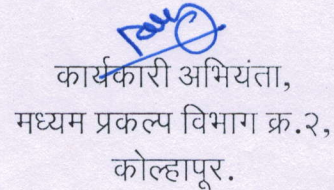 कार्यकारी अभियंता,
मध्यम प्रकल्प विभाग क्र.२,
कोल्हापूर.